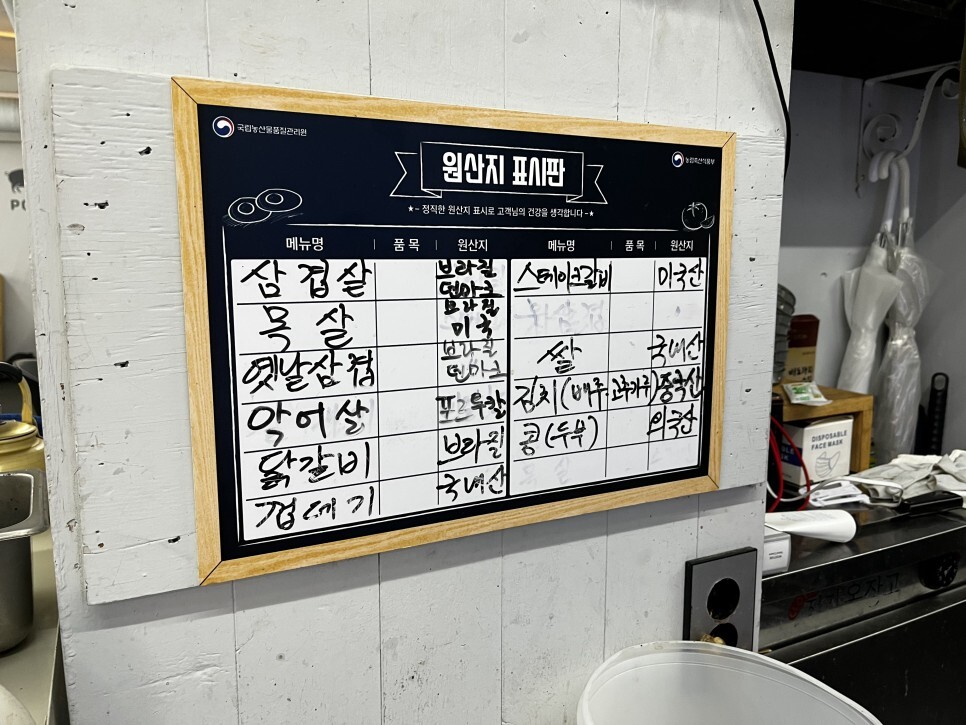 국립농산물품질관리원
농림축산식품부
원산지 표시판
★~ 정직한 원산지 표시로 고객님의 건강을 생각합니다 ~★
메뉴명 품 목 원산지 메뉴명 품 목 원산지
삼겹살 브라질 덴마크
목살 브라질 미국
옛날삼겹 브라질 덴마크
악어살 포르투칼
닭갈비 브라질
껍데기 국내산
스테이크갈비 미국산
쌀 국내산
김치(배추·고추가루) 중국산
콩(두부) 외국산
DISPOSABLE
FACE MASK